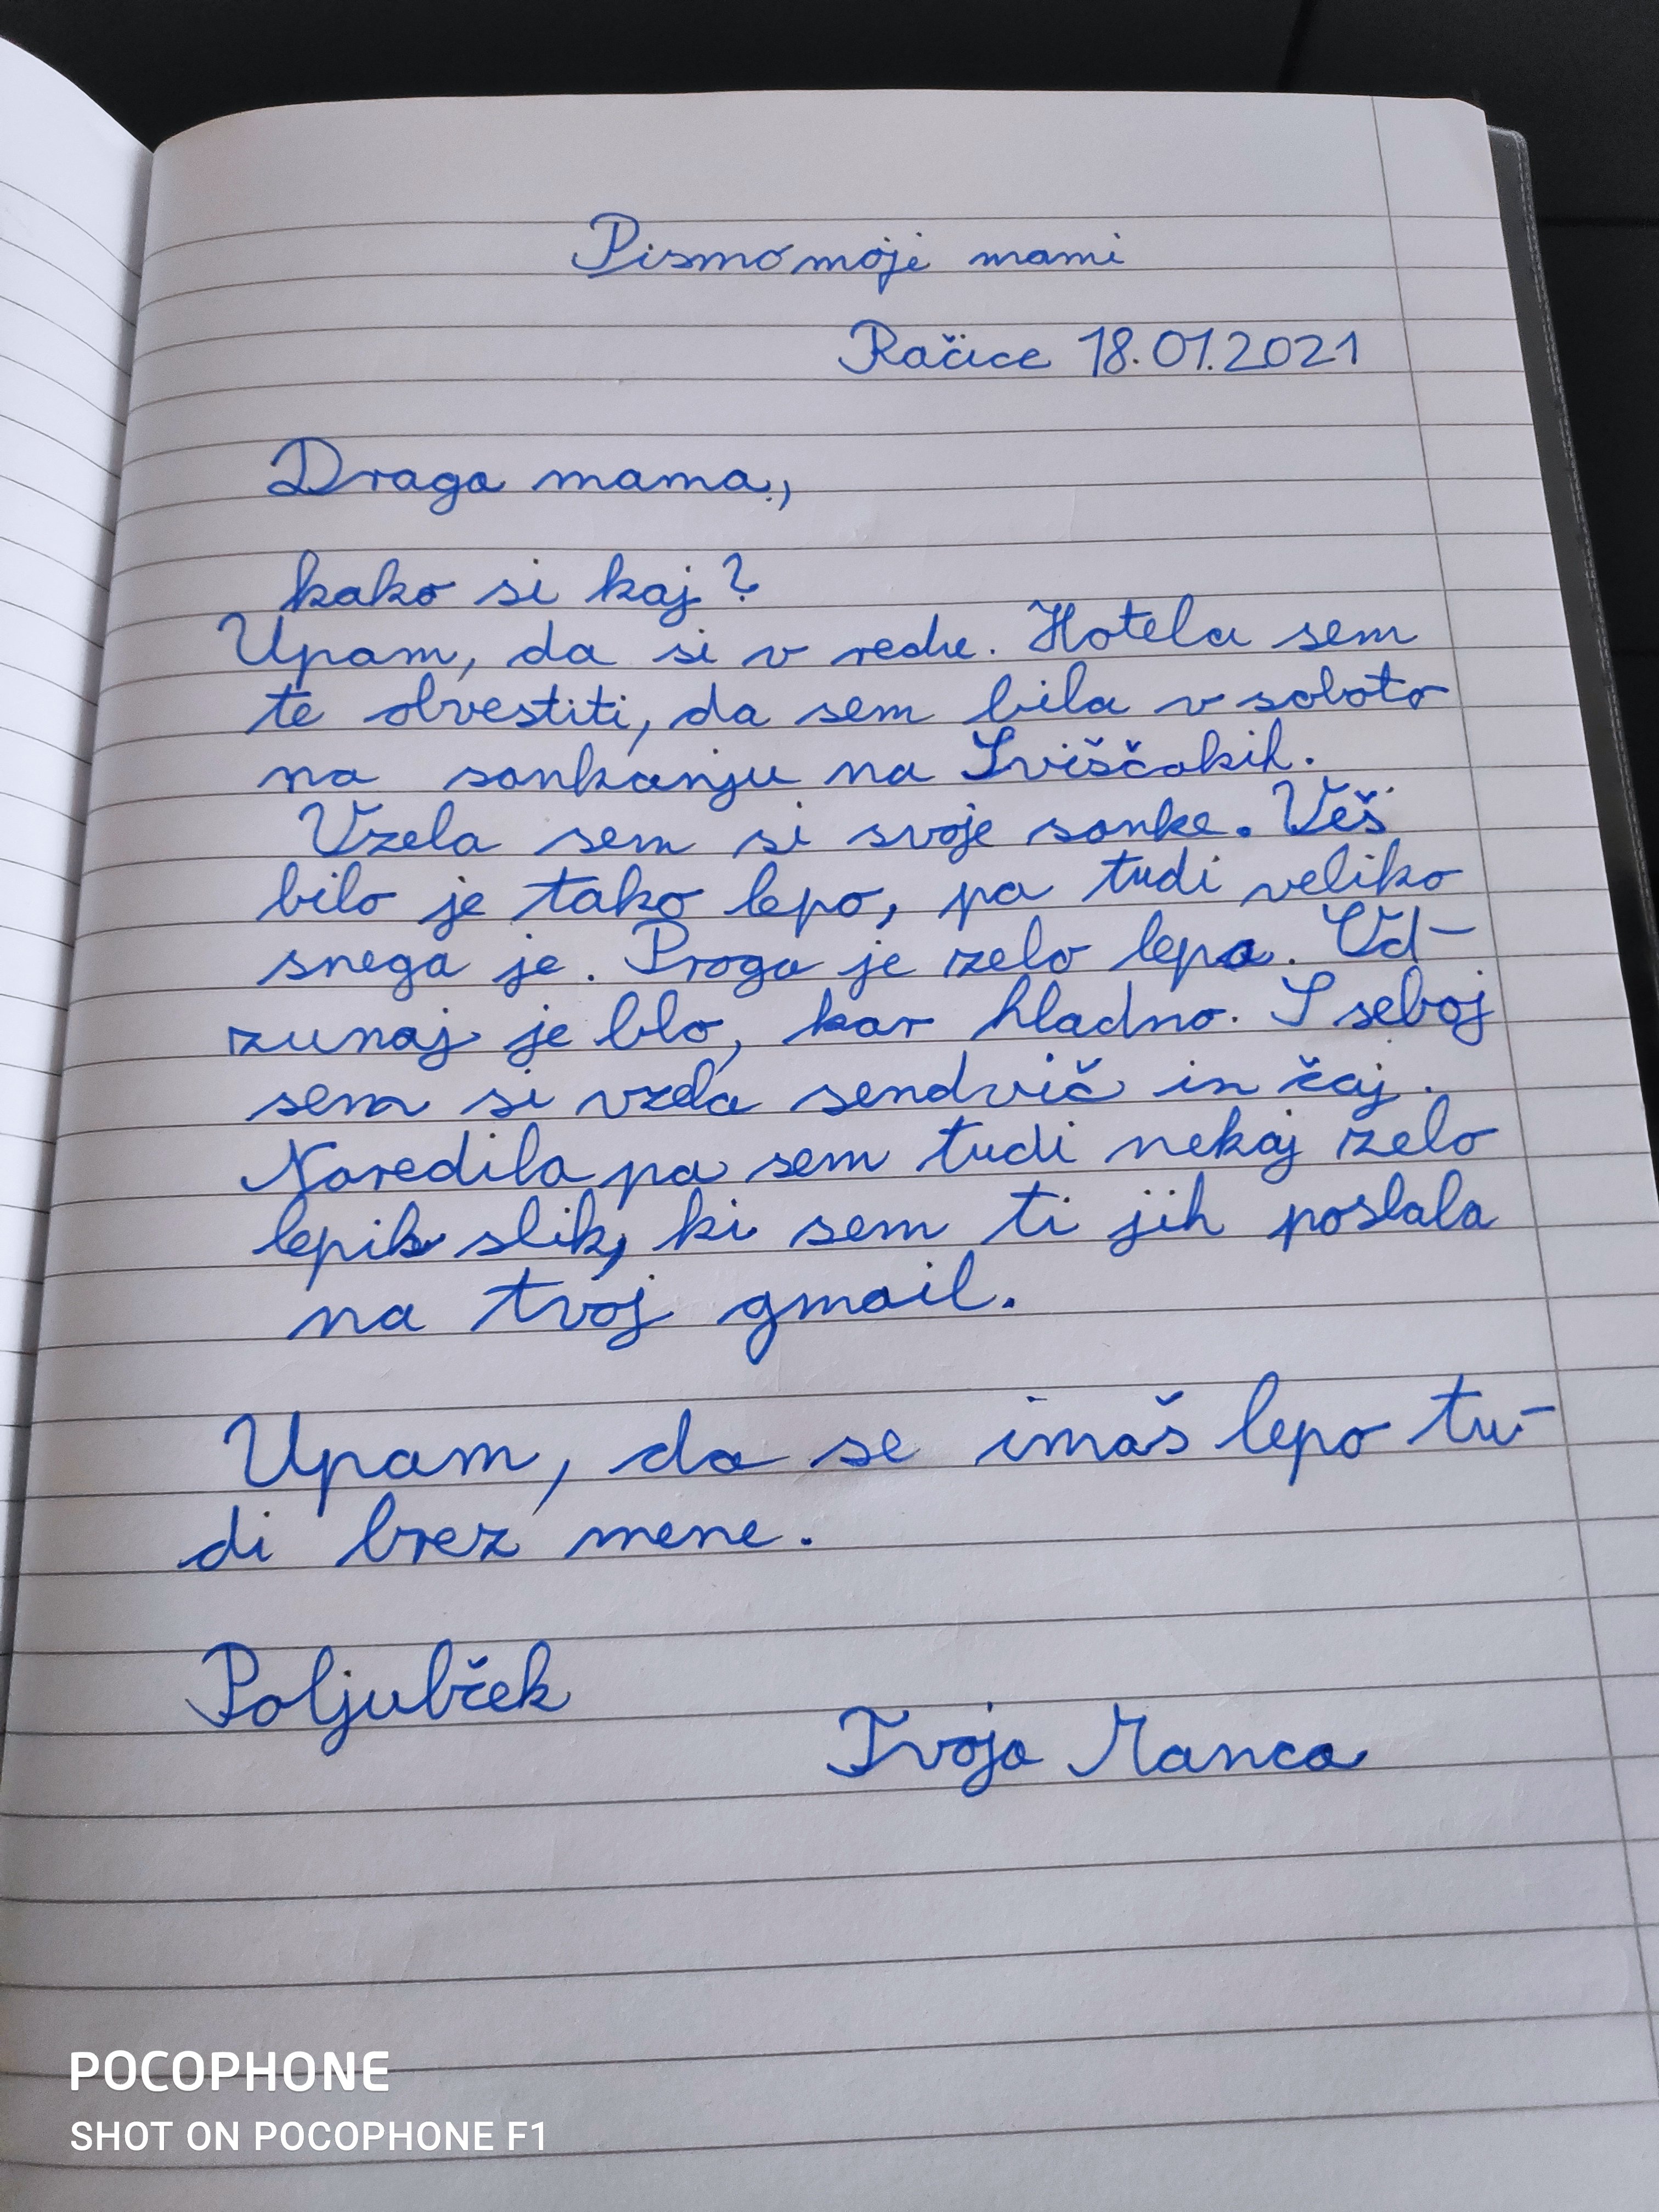 Pismo moji mami
Račice 18.01.2021
Draga mama,
kako si kaj?
Upam, da si v redu. Hotela sem
te obvestiti, da sem bila v soboto
na sankanju na Sviščakih.
Vzela sem si svoje sanke. Veš
bilo je tako lepo, pa tudi veliko
snega je. Proga je zelo lepa. Od-
zunaj je blo, kar hladno. S seboj
sem si vzela sendvič in čaj.
Naredila pa sem tudi nekaj zelo
lepih slik, ki sem ti jih poslala
na tvoj gmail.
Upam, da se imaš lepo tu-
di brez mene.
Poljubček
Tvoja Manca
POCOPHONE
SHOT ON POCOPHONE F1